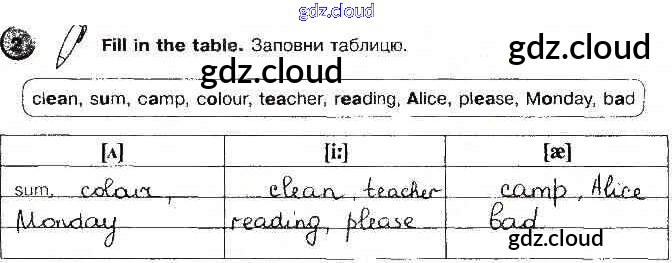 gdz.cloud
2 Fill in the table. Заповни таблицю.
gdz.cloud
gdz.cloud
clean, sum, camp, colour, teacher, reading, Alice, please, Monday, bad
[ʌ] [i:] [æ]
sum, colour, clean, teacher camp, Alice
Monday reading, please bad
gdz.cloud